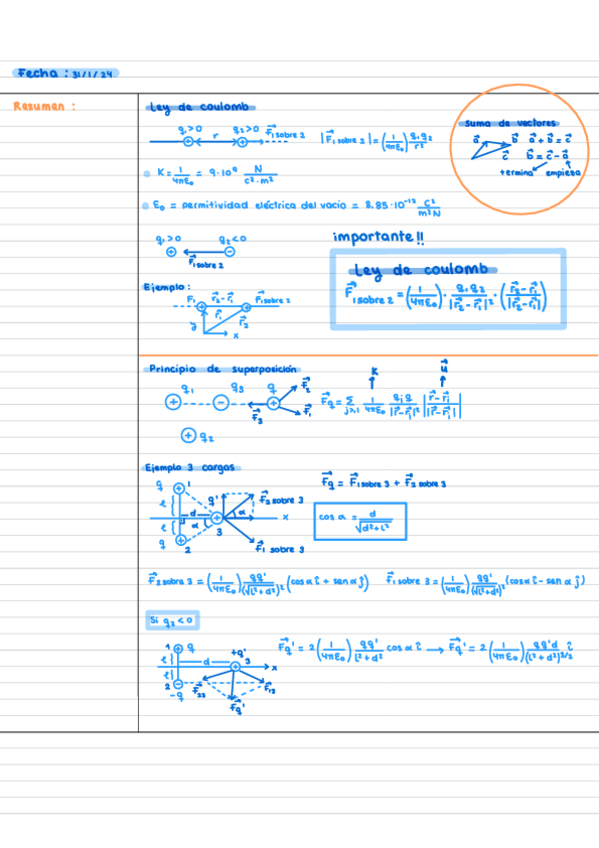 Fecha : 31/1/24
Resumen :
Ley de coulomb
q₁>0 q₂>0 F⃗₁ sobre 2
r
|F⃗₁ sobre 2| = (1/4πε₀) q₁q₂/r²
suma de vectores
a⃗ b⃗ a⃗ + b⃗ = c⃗
c⃗ b⃗ = c⃗ - a⃗
termina empieza
K = 1/4πε₀ = 9·10⁹ N/c²·m²
ε₀ = permitividad eléctrica del vacío = 8.85·10⁻¹² C²/m²N
q₁>0 q₂<0
F⃗₁ sobre 2
importante!!
Ley de coulomb
F⃗₁ sobre 2 = (1/4πε₀) · q₁q₂/|r⃗₂-r⃗₁|² · (r⃗₂-r⃗₁/|r⃗₂-r⃗₁|)
Ejemplo :
F₁ r⃗₂-r⃗₁ F⃗₁ sobre 2
r⃗₁ r⃗₂
y x
Principio de superposición
K u⃗
q₁ q₃ q F⃗₂
F⃗₃ F⃗₁
F⃗q = Σ j>,1 1/4πε₀ qⱼq/|r⃗-r⃗ⱼ|² |r⃗-r⃗ⱼ/|r⃗-r⃗ⱼ||
q₂
Ejemplo 3 cargas
F⃗q = F⃗₁ sobre 3 + F⃗₂ sobre 3
q 1 q' F⃗₂ sobre 3
l d α α x
l 3
q 2 F⃗₁ sobre 3
cos α = d/√d²+L²
F⃗₂ sobre 3 = (1/4πε₀) qq'/(√L²+d²)² (cosα î + sen α ĵ)
F⃗₁ sobre 3 = (1/4πε₀) qq'/(√L²+d²)² (cosα î - sen α ĵ)
Si q₂<0
1 q +q'
l d 3 x
l
2 F⃗₂₃ F⃗₁₃
-q F⃗q'
F⃗q' = 2(1/4πε₀) qq'/L²+d² cos α î → F⃗q' = 2(1/4πε₀) qq'd/(L²+d²)^3/2 î